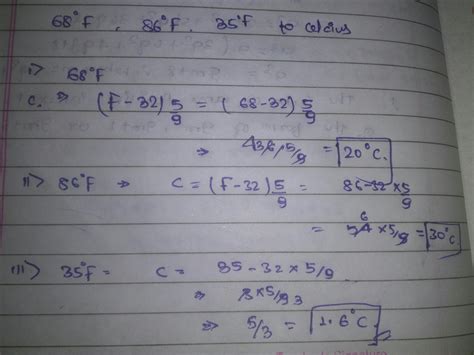 68°F . 86°F . 35°F to celcius
i) 68°F
C. ⇒ (F-32) 5/9 = (68-32) 5/9
⇒ 4 36 × 5/9 = 20°C.
ii) 86°F ⇒ C = (F-32) 5/9 = 86-32 × 5/9
= 6 54 × 5/9 = 30°C
iii) 35°F = C = 35-32 × 5/9
⇒ 3 × 5/9 3
⇒ 5/3 = 1.6°C